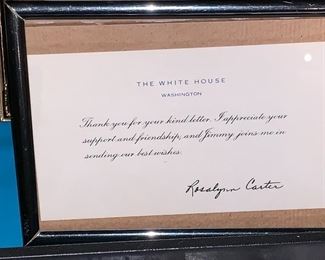 THE WHITE HOUSE
WASHINGTON
Thank you for your kind letter. I appreciate your
support and friendship, and Jimmy joins me in
sending our best wishes.
Rosalynn Carter